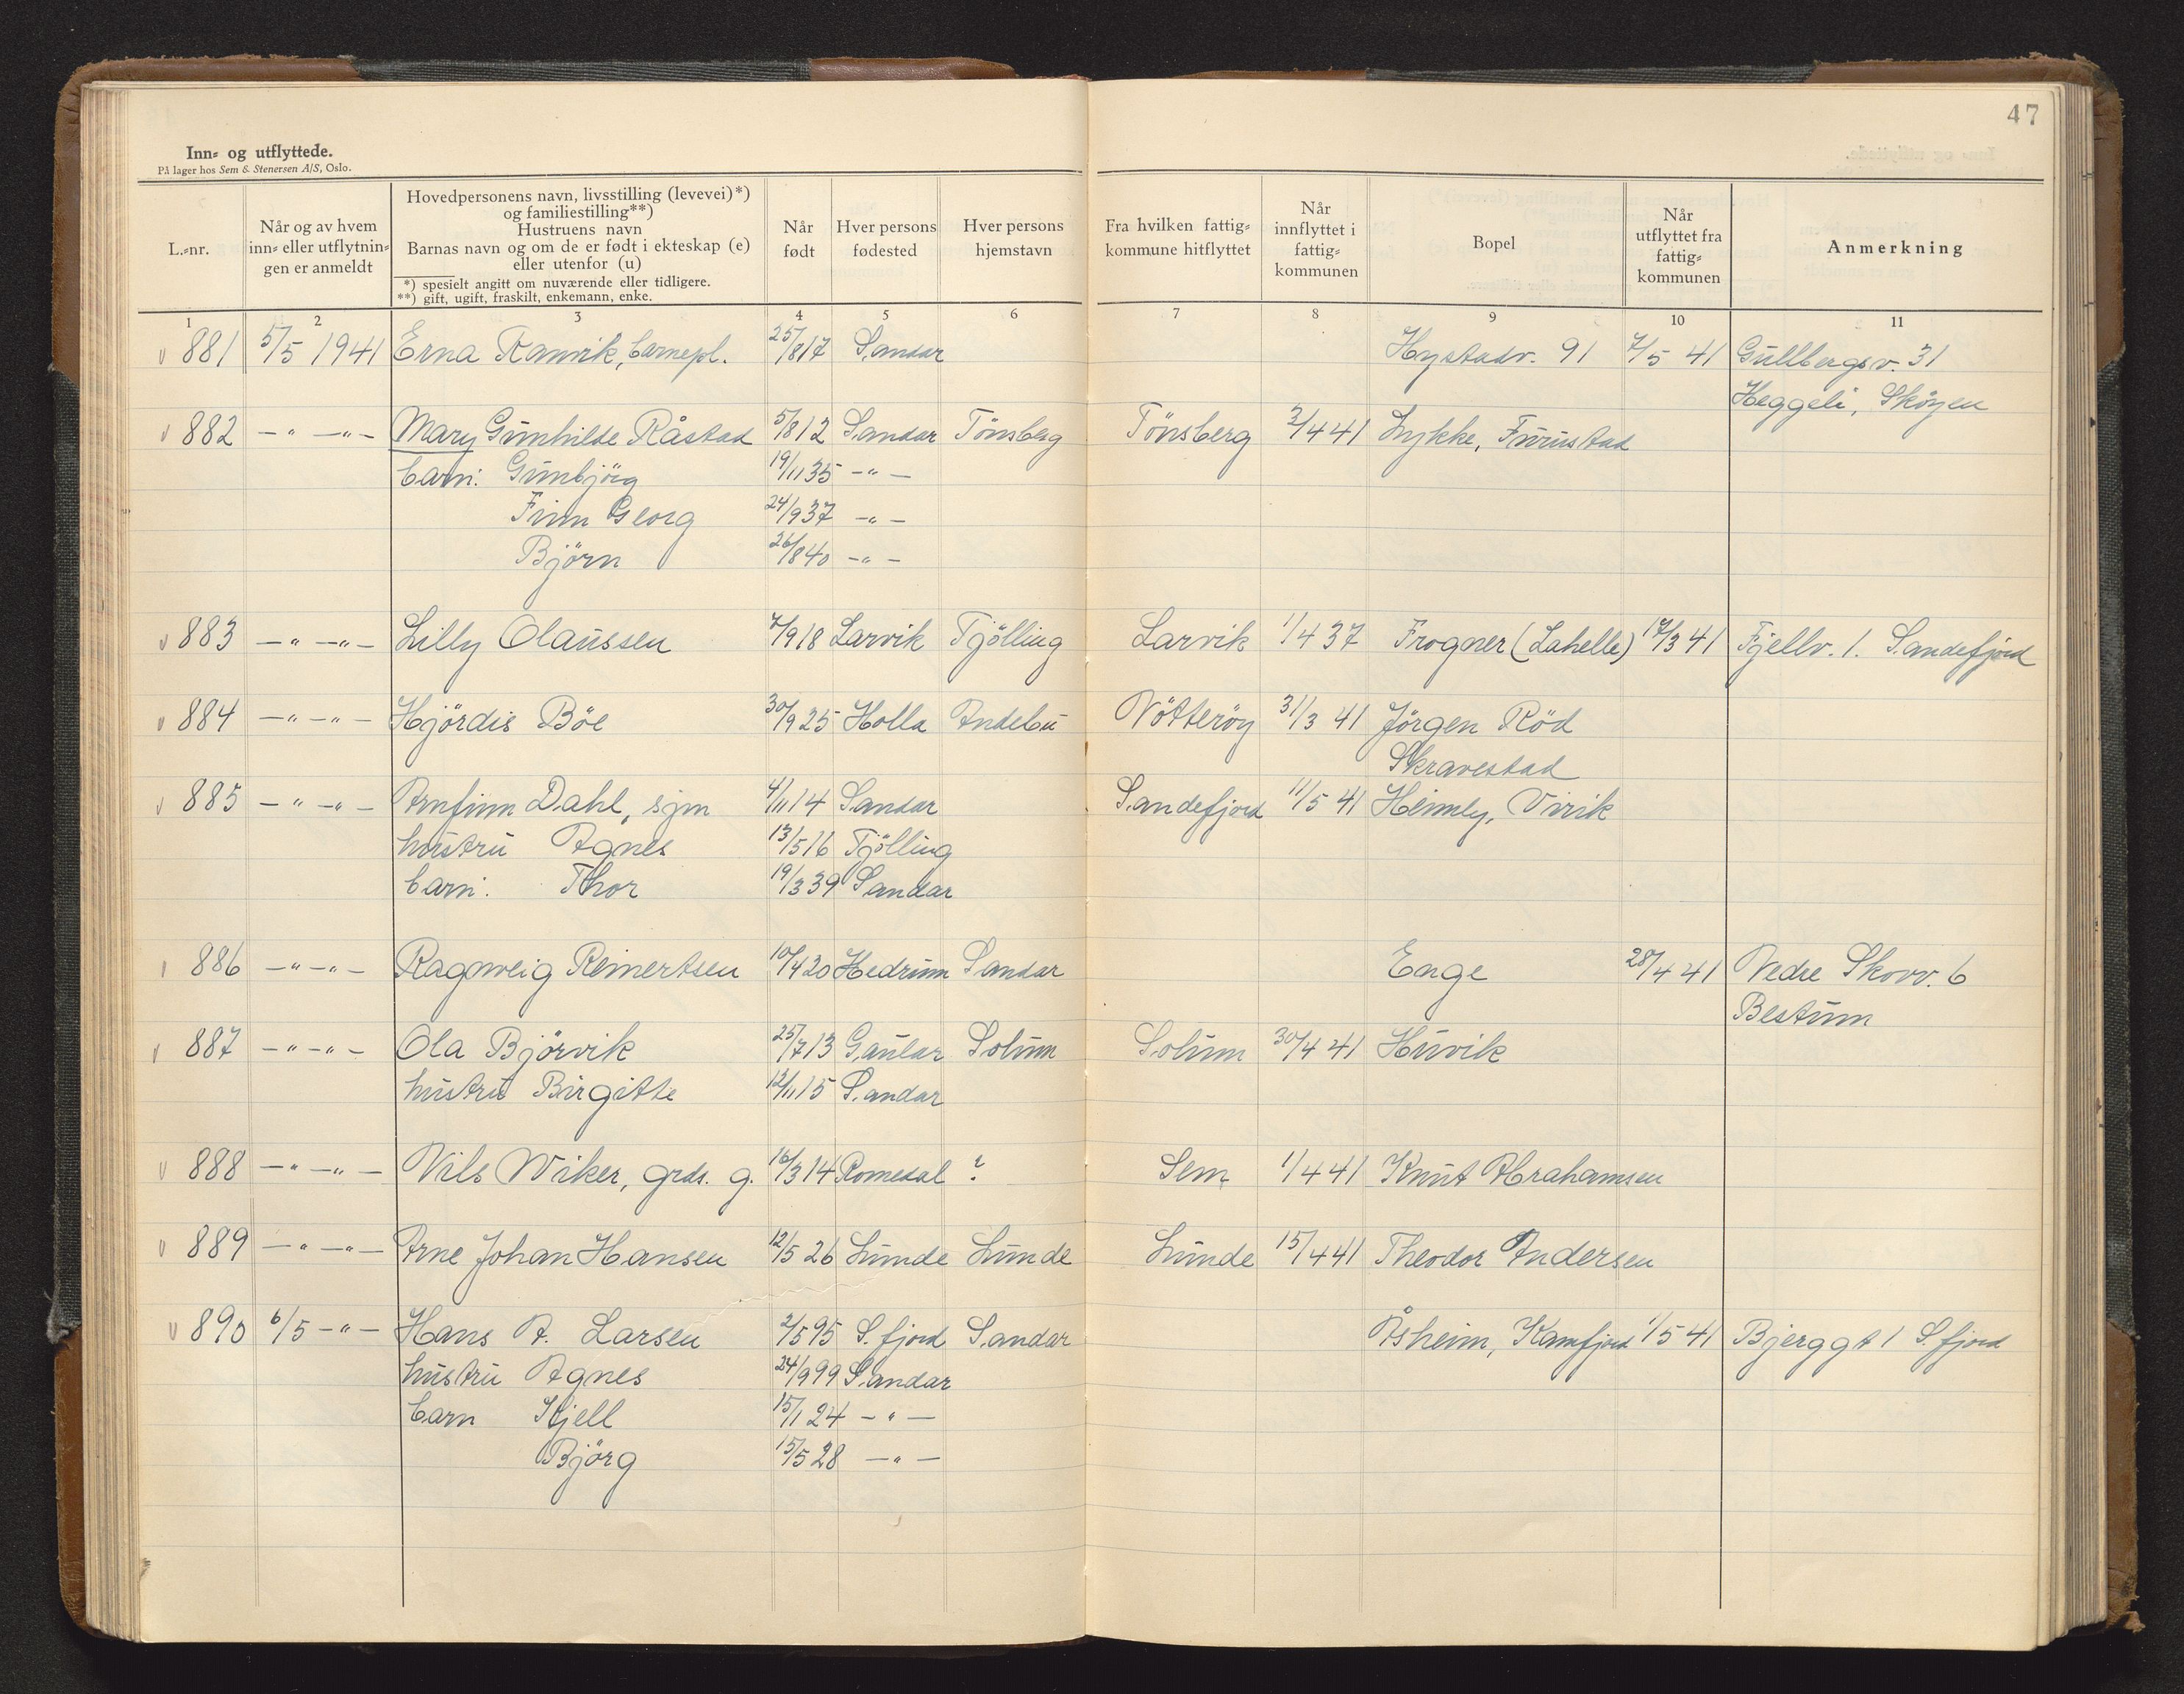 47
Inn= og utflyttede.
På lager hos Sem & Stenersen A/S, Oslo.
L.=nr.
Når og av hvem
inn= eller utflytnin=
gen er anmeldt
Hovedpersonens navn, livsstilling (levevei)*)
og familiestilling**)
Hustruens navn
Barnas navn og om de er født i ekteskap (e)
eller utenfor (u)
*) spesielt angitt om nuværende eller tidligere.
**) gift, ugift, fraskilt, enkemann, enke.
Når
født
Hver persons
fødested
Hver persons
hjemstavn
Fra hvilken fattig=
kommune hitflyttet
Når
innflyttet i
fattig=
kommunen
Bopel
Når
utflyttet fra
fattig=
kommunen
Anmerkning
1 2 3 4 5 6 7 8 9 10 11
881 5/5 1941 Erna Ranvik, barnepl. 25/8 17 Sandar Hystadv. 91 7/5 41 Gullbergsv. 31
Heggeli, Skøyen
882 -"- -"- Mary Gunhilde Råstad 5/8 12 Sandar Tönsberg Tönsberg 2/4 41 Lykke, Furustad
barn: Gunbjörg 19/11 35 -"-
Finn Georg 24/9 37 -"-
Björn 26/8 40 -"-
883 -"- -"- Lilly Olaussen 7/9 18 Larvik Tjölling Larvik 1/4 37 Frogner (Lahelle) 17/3 41 Fjellv. 1. Sandefjord
884 -"- -"- Hjördis Böe 30/9 25 Holla Andebu Nötteröy 31/3 41 Jörgen Röd
Skravestad
885 -"- -"- Arnfinn Dahl, sjm 4/11 14 Sandar Sandefjord 11/5 41 Heimly, Virik
hustru Agnes 13/5 16 Tjölling
barn: Thor 19/3 39 Sandar
886 -"- -"- Ragnveig Reinertsen 10/4 20 Hedrum Sandar Enge 28/4 41 Nedre Skovv. 6
Bestum
887 -"- -"- Ola Björvik 25/7 13 Gaular Solum Solum 30/4 41 Huvik
hustru Birgitte 12/11 15 Sandar
888 -"- -"- Nils Wiker, grds. g. 16/3 14 Romedal ? Sem 1/4 41 Knut Abrahamsen
889 -"- -"- Arne Johan Hansen 12/5 26 Lunde Lunde Lunde 15/4 41 Theodor Andersen
890 6/5 -"- Hans A. Larsen 2/5 95 S.fjord Sandar Åsheim, Kamfjord 1/5 41 Bjerggt 1 S.fjord
hustru Agnes 24/9 99 Sandar
barn Kjell 15/1 24 -"-
Björg 15/5 28 -"-